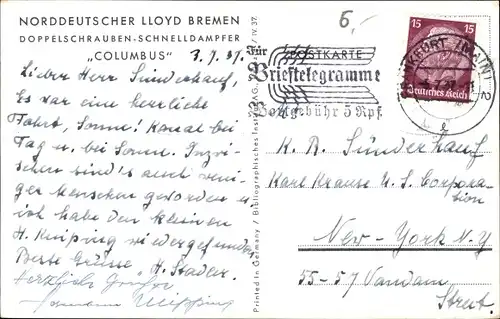 NORDDEUTSCHER LLOYD BREMEN
DOPPELSCHRAUBEN-SCHNELLDAMPFER
"COLUMBUS"
3.7.37.
Lieber Herr Sünderhauf,
Es war eine herrliche
Fahrt, Sonne! Kanal bei
Tag u. bei Sonne. Inzwi-
schen sind's auch weni-
ger Menschen geworden u
ich habe den kleinen
H. Knipping wiedergefunden
Beste Grüsse H. Stader.
Herzliche Grüsse
Hermann
Printed in Germany / Bibliographisches Institut AG. / IV. 37.
6,-
POSTKARTE
Für
Brieftelegramme
Postgebühr 5 Rpf.
15 15
Deutsches Reich
FRANKFURT (MAIN) 2
K. R. Sünderhauf
Karl Krause U. S. Corpora-
tion
New-York N.Y
55-57 Vandam
Street.